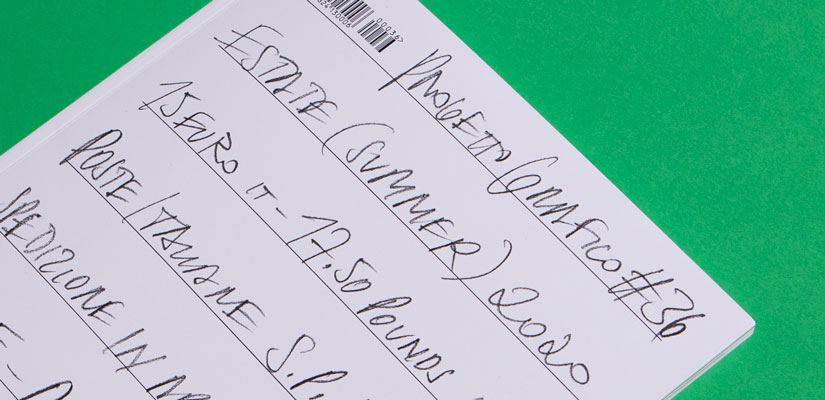 00036>
PROGETTO GRAFICO #36
ESTATE (SUMMER) 2020
15 EURO IT - 17.50 POUNDS
POSTE ITALIANE S.P.
SPEDIZIONE IN